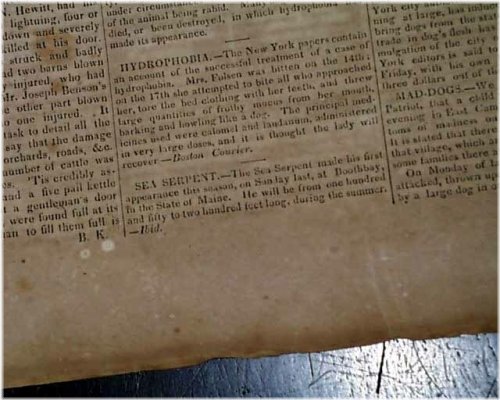 N. Hewitt, had his
lightning, four or
down and severely
killed at his door
struck and badly
nd two barns blown
y-injured, who had
Mr. Joseph, Benson's
e other part blown
o one injured. It
task to detail all the
say that the damage
orchards, roads, &c.
number of cattle was
es. 'Tis credibly as-
nd a five pail kettle
t a gentleman's door
were found full at its
an to fill them full is
B. K.
under circumstan
of the animal being rabid. Many
died, or been destroyed, in which hydrophob
made its appearance.
HYDROPHOBIA.—The New York papers contain
an account of the successful treatment of a case of
hydrophobia. Mrs. Folsen was bitten on the 14th;
on the 17th she attempted to bite all who approached
her, tore the bed clothing with her teeth, and threw
large quantities of frothy mucus from her mouth,
barking and howling like a dog. The principal med-
icines used were calomel and laudanum, administered
in very large doses, and it is thought the lady will
recover.—Boston Courier.
SEA SERPENT.—The Sea Serpent made his first
appearance this season, on Sunday last, at Boothbay,
in the State of Maine. He will be from one hundred
and fifty to two hundred feet long, during the summer.
—Ibid.
York city
ning at large, has
bring dogs from the
trade in dog's flesh has
mulgation of the city
York editors is said to
Friday, with his own
three dollars out of the
MAD-DOGS.—We
Patriot, that a child
evening in East
toms of madness
It is stated that there
that village, which
some families there
On Monday of
attacked, thrown up
by a large dog in a